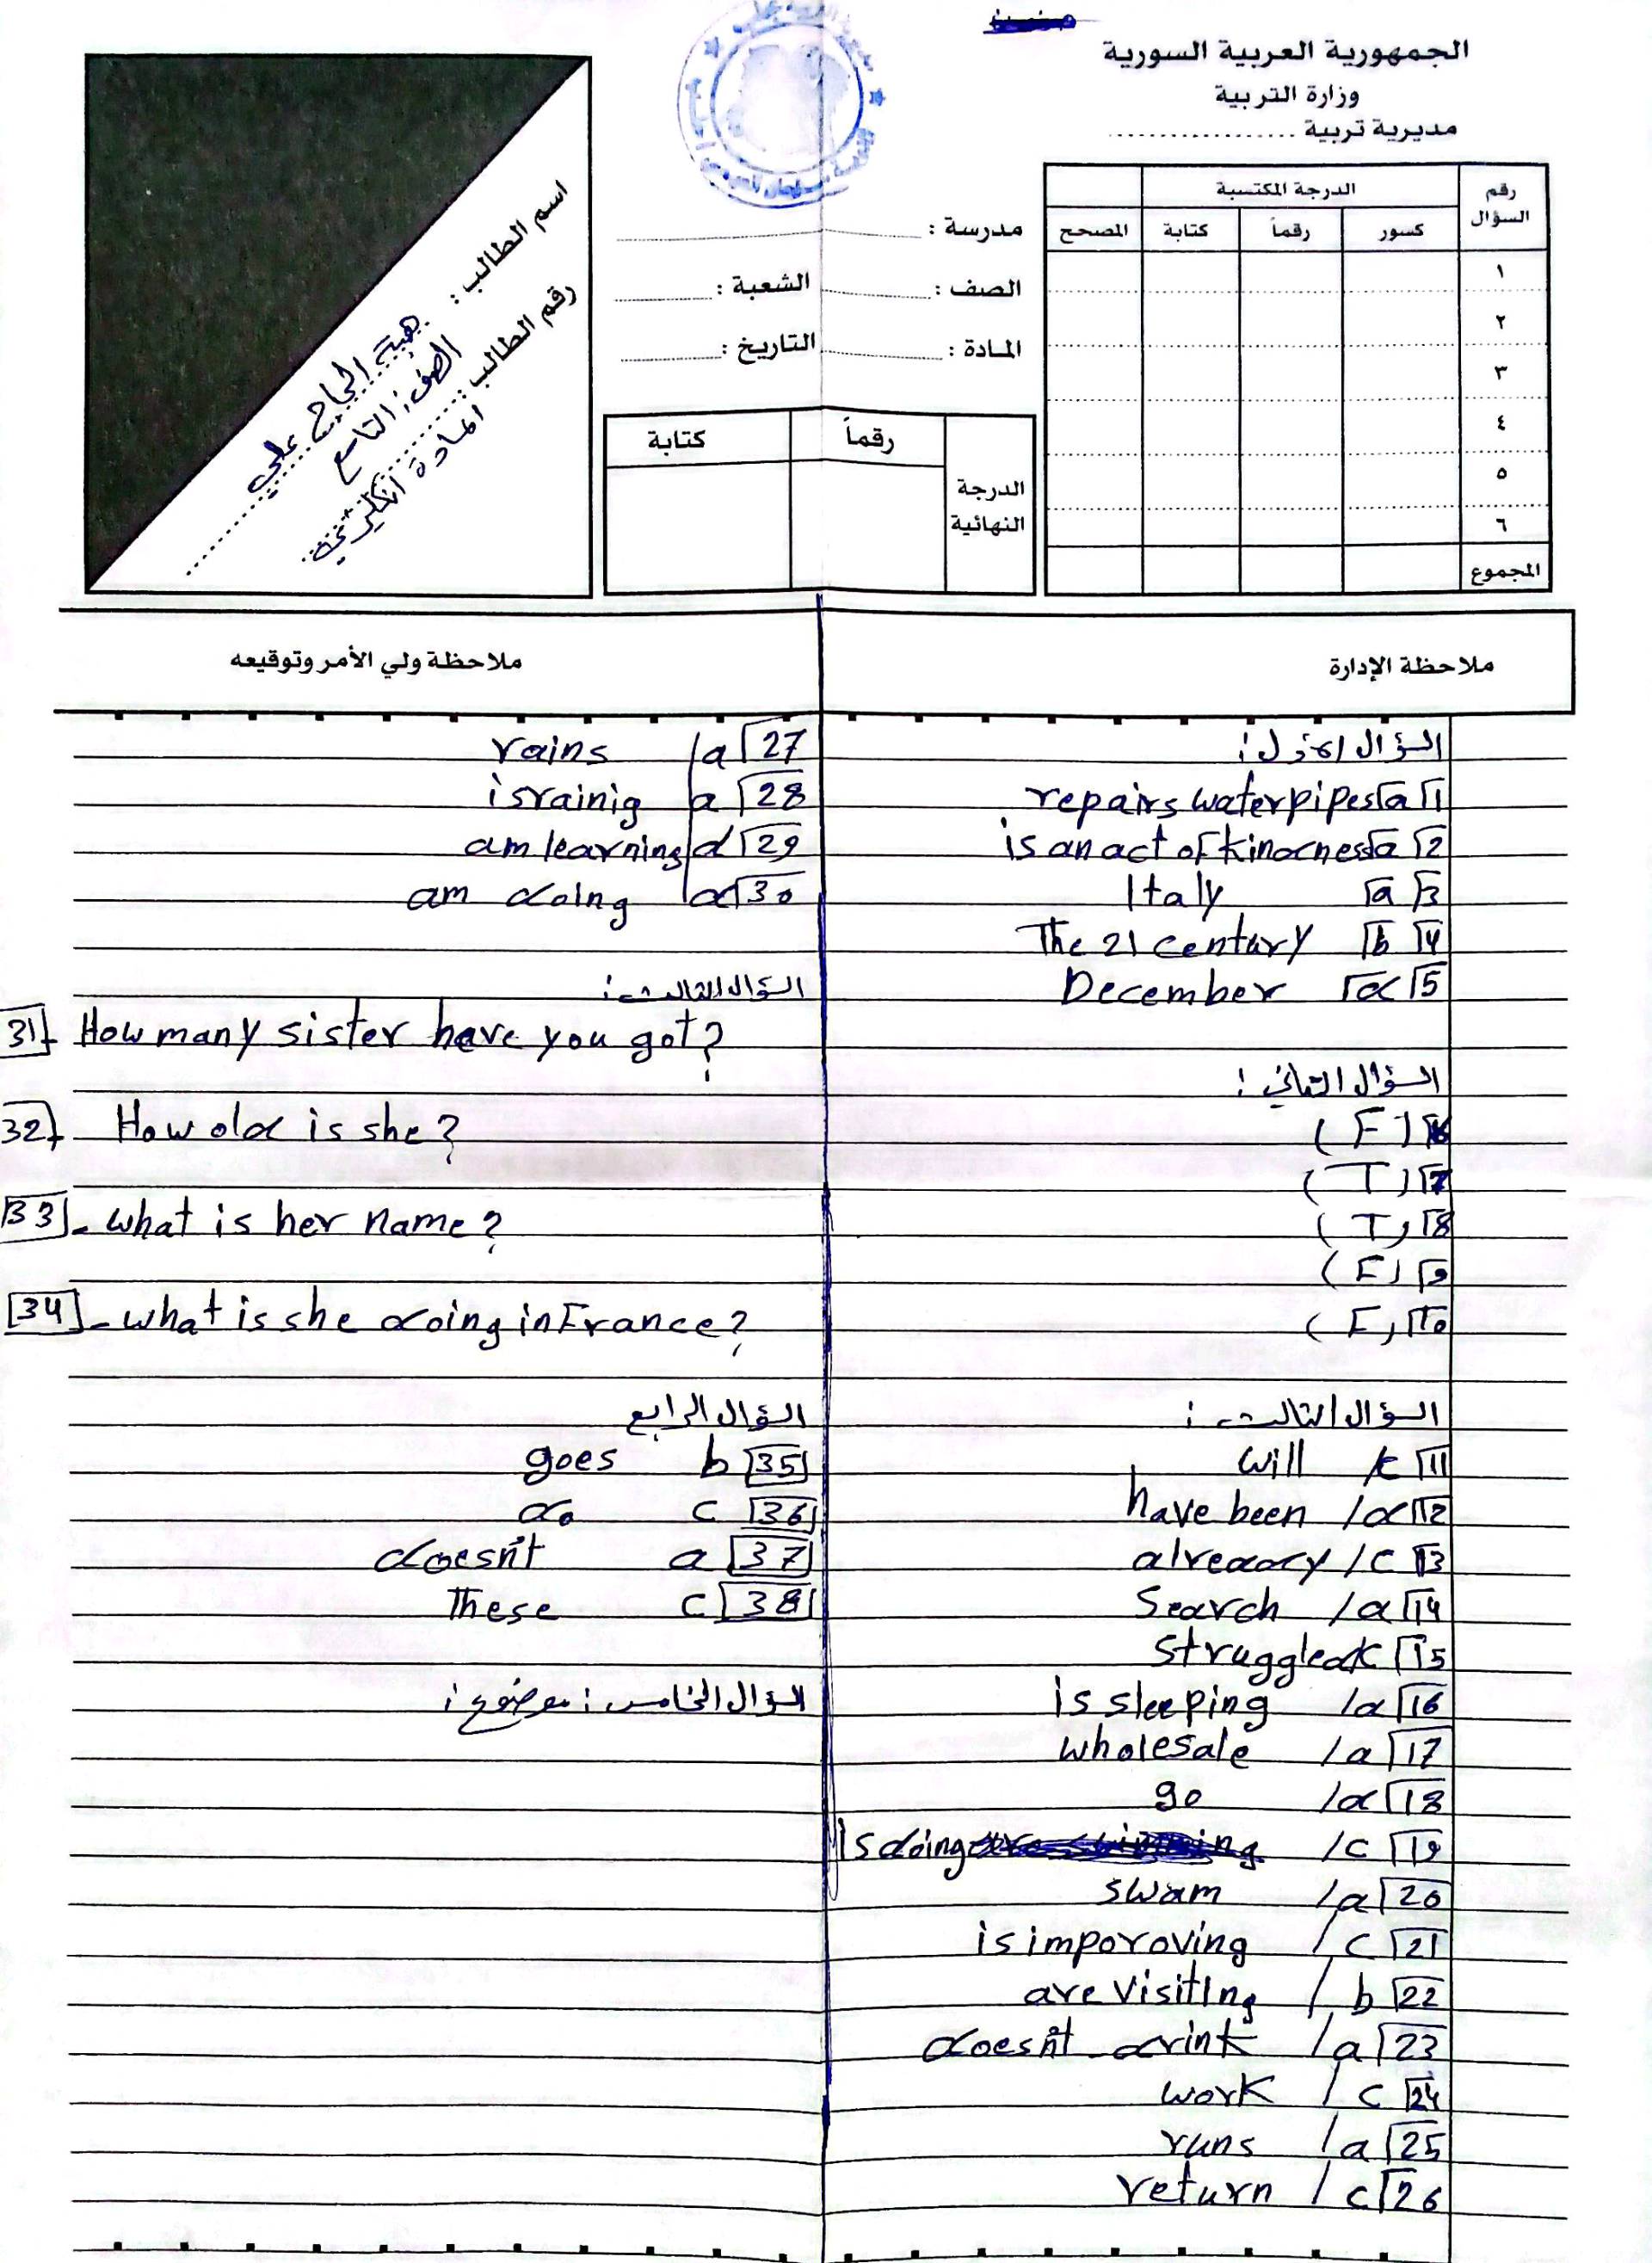 الجمهورية العربية السورية
وزارة التربية
مديرية تربية ..................
رقم السؤال
الدرجة المكتسبة
كسور
رقماً
كتابة
المصحح
١
٢
٣
٤
٥
٦
المجموع
مدرسة :
الصف :
الشعبة :
المادة :
التاريخ :
الدرجة النهائية
رقماً
كتابة
اسم الطالب : هبة الحاج علي
رقم الطالب :
الصف: التاسع
المادة انكليزي
ملاحظة الإدارة
ملاحظة ولي الأمر وتوقيعه
السؤال الاول:
1 a repairs water pipes
2 a is an act of kindness
3 a Italy
4 b The 21 century
5 d December
السؤال الثاني :
6 ( F )
7 ( T )
8 ( T )
9 ( F )
10 ( F )
السؤال الثالث :
11 c will
12 d / have been
13 c / already
14 a / Search
15 struggled
16 a / is sleeping
17 a / wholesale
18 d / go
19 c / Is doing
20 a / swam
21 c / is imporoving
22 b / are visiting
23 a / doesn't drink
24 c / work
25 a / runs
26 c / return
27 a / rains
28 a israinig
29 d am learning
30 d am doing
السؤال الثالث :
31- How many sister have you got?
32- How old is she?
33- what is her name?
34- what is she doing in France?
السؤال الرابع
35 b goes
36 c do
37 a doesn't
38 c These
السؤال الخامس : موضوع :